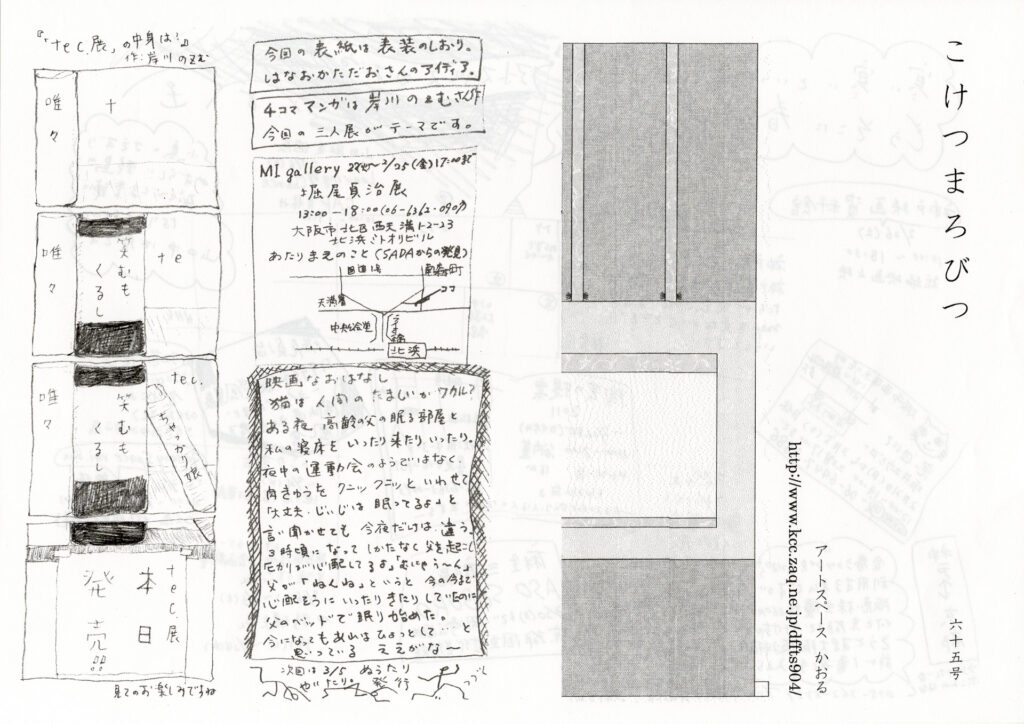 こけつまろびつ
六十五号
アートスペース かおる
http://www.kcc.zaq.ne.jp/dffts904/
今回の表紙は表装のしおり。
はなおかただおさんのアイディア。
4コママンガは岸川のぞむさん作
今回の三人展がテーマです。
MI gallery 2/25(金)17:00まで
堀尾貞治展
13:00-18:00(06-6362-0907)
大阪市北区西天満1-2-23
北浜ミトオリビル
あたりまえのこと(SADAからの発見)
天満署
ココ
中央公会堂
北浜
映画なおはなし
猫は人間のたましいがワカル?
ある夜、高齢の父の眠る部屋と
私の寝床といったり来たりいったり。
夜中の運動会のようではなく、
肉きゅうをクニックニッといわせて
「大丈夫・じいじは眠ってるよ」と
言い聞かせても 今夜だけは違う。
3時頃になってしかたなく父を起こし
心配してるよ
父が「ねんね」というと 今の今まで
心配そうにいったりきたりしていたのに
父のベッドで眠り始めた。
今になってもあれはひょっとして…と
思っている ええがな〜
次回は3/5 ぬうたり
発行
つづく
『「tec.展」の中身は?』
作:岸川のぞむ
唯々
t
唯々
笑むも
くるし
te
唯々
笑むも
くるし
tec.
ちゃっかり娘
tec.展
本日
発売
見てのお楽しみですね